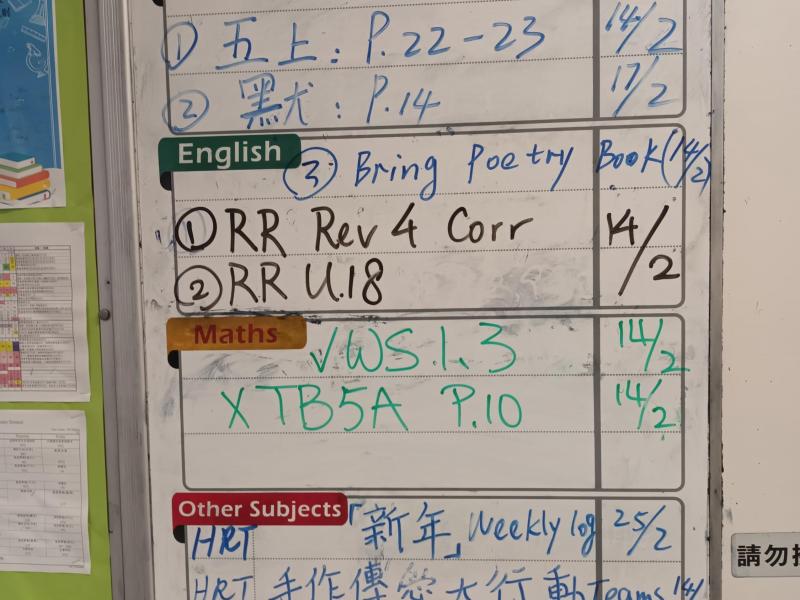 ① 五上: P.22-23 14/2
② 黑犬: P.14 17/2
English
③ Bring Poetry Book (14/2)
① RR Rev 4 Corr 14/2
② RR U.18
Maths
✓ WS.1.3 14/2
X TB5A P.10 14/2
Other Subjects
HRT 「新年」 Weekly log 25/2
HRT 手作傳愛大行動 Teams 14/
請勿